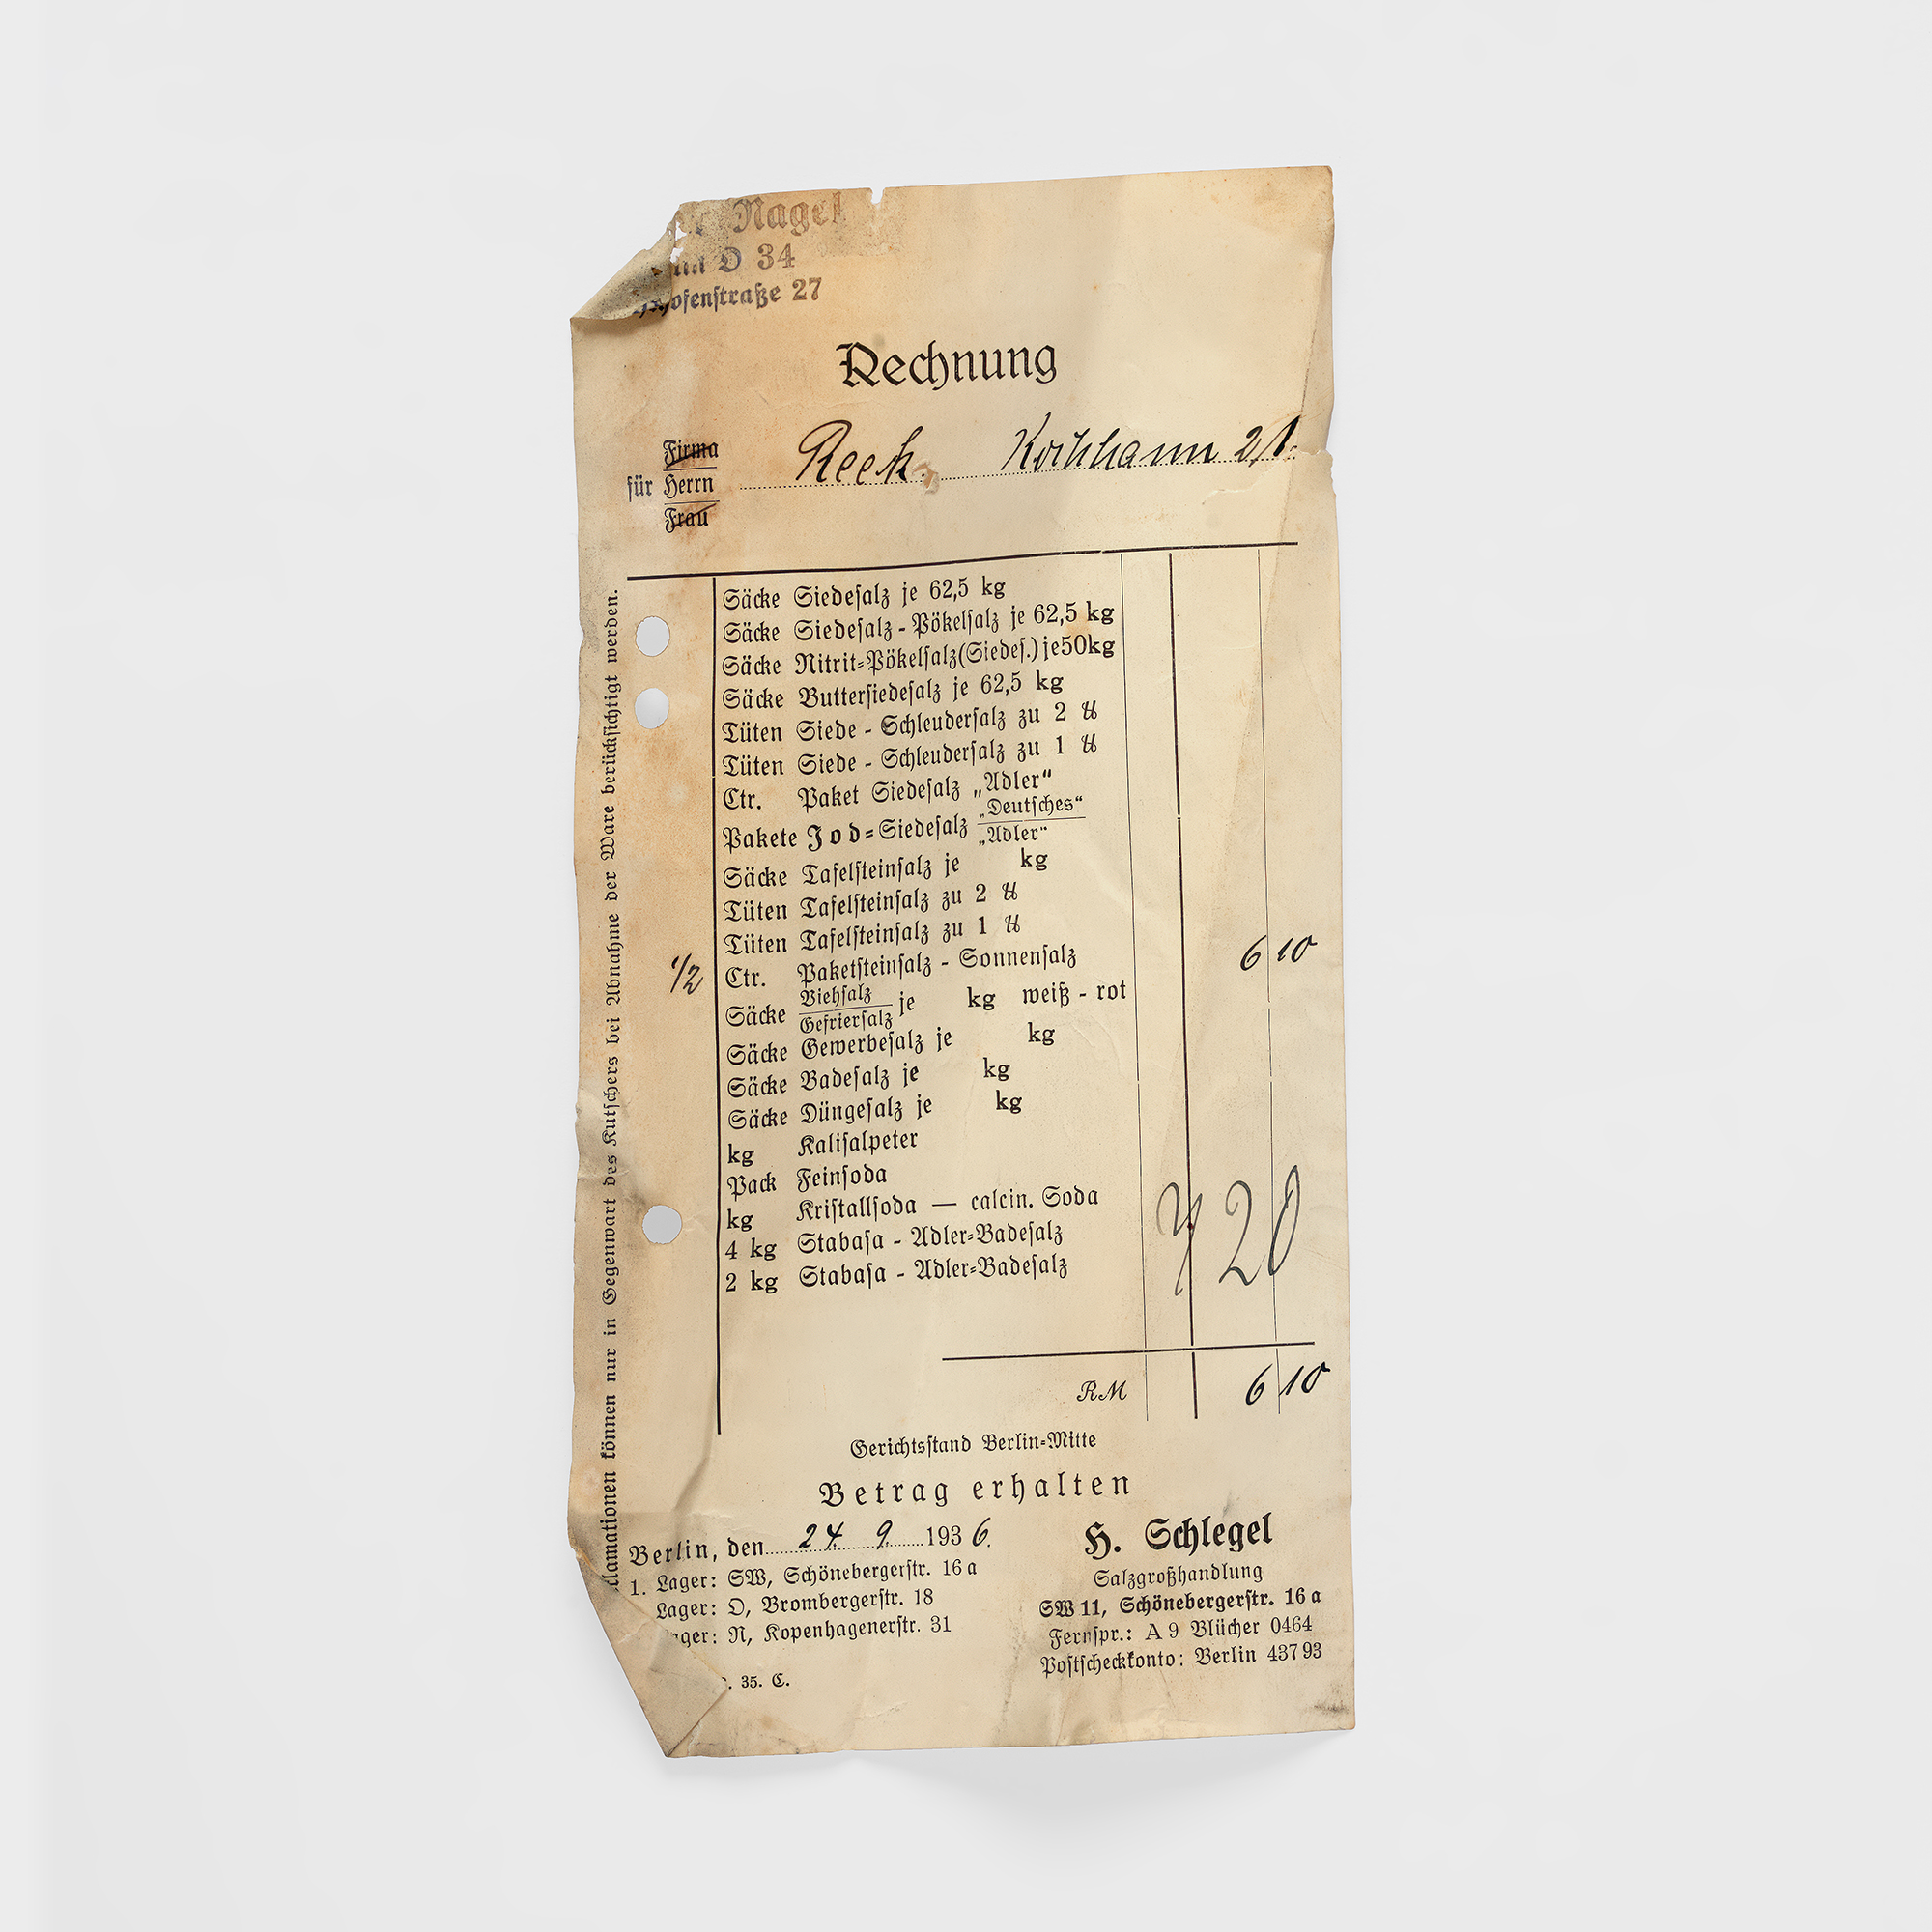 Nagel
O 34
hofenstraße 27
Rechnung
Firma
für Herrn
Frau
Reek. Kochhann 21.
Säcke Siedesalz je 62,5 kg
Säcke Siedesalz - Pökelsalz je 62,5 kg
Säcke Nitrit=Pökelsalz (Siedes.) je 50 kg
Säcke Buttersiedesalz je 62,5 kg
Tüten Siede - Schleudersalz zu 2 ℔
Tüten Siede - Schleudersalz zu 1 ℔
Ctr. Paket Siedesalz „Adler“
Pakete Jod=Siedesalz „Deutsches“
„Adler“
Säcke Tafelsteinsalz je kg
Tüten Tafelsteinsalz zu 2 ℔
Tüten Tafelsteinsalz zu 1 ℔
1/2 Ctr. Paketsteinsalz - Sonnensalz 6 10
Säcke Viehsalz je kg weiß - rot
Gefriersalz
Säcke Gewerbesalz je kg
Säcke Badesalz je kg
Säcke Düngesalz je kg
kg Kalisalpeter
Pack Feinsoda
kg Kristallsoda — calcin. Soda
4 kg Stabasa - Adler=Badesalz
2 kg Stabasa - Adler=Badesalz
20
RM 6 10
Gerichtsstand Berlin=Mitte
Betrag erhalten
Berlin, den 24. 9. 1936.
1. Lager: SW, Schönebergerstr. 16 a
Lager: O, Brombergerstr. 18
ager: N, Kopenhagenerstr. 31
. 35. C.
H. Schlegel
Salzgroßhandlung
SW 11, Schönebergerstr. 16 a
Fernspr.: A 9 Blücher 0464
Postscheckkonto: Berlin 437 93
klamationen können nur in Gegenwart des Kutschers bei Abnahme der Ware berücksichtigt werden.